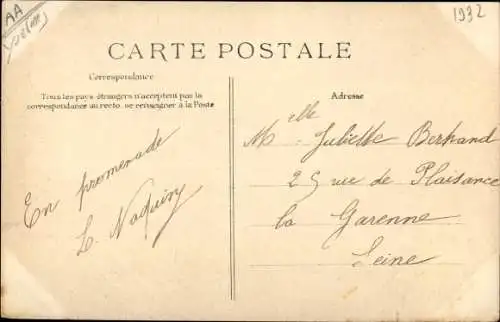 AA
1932
CARTE POSTALE
Correspondance
Tous les pays étrangers n'acceptent pas la
correspondance au recto, se renseigner à la Poste
En promenade
Adresse
Melle Juliette Bertrand
25 rue de Plaisance
la Garenne
Seine